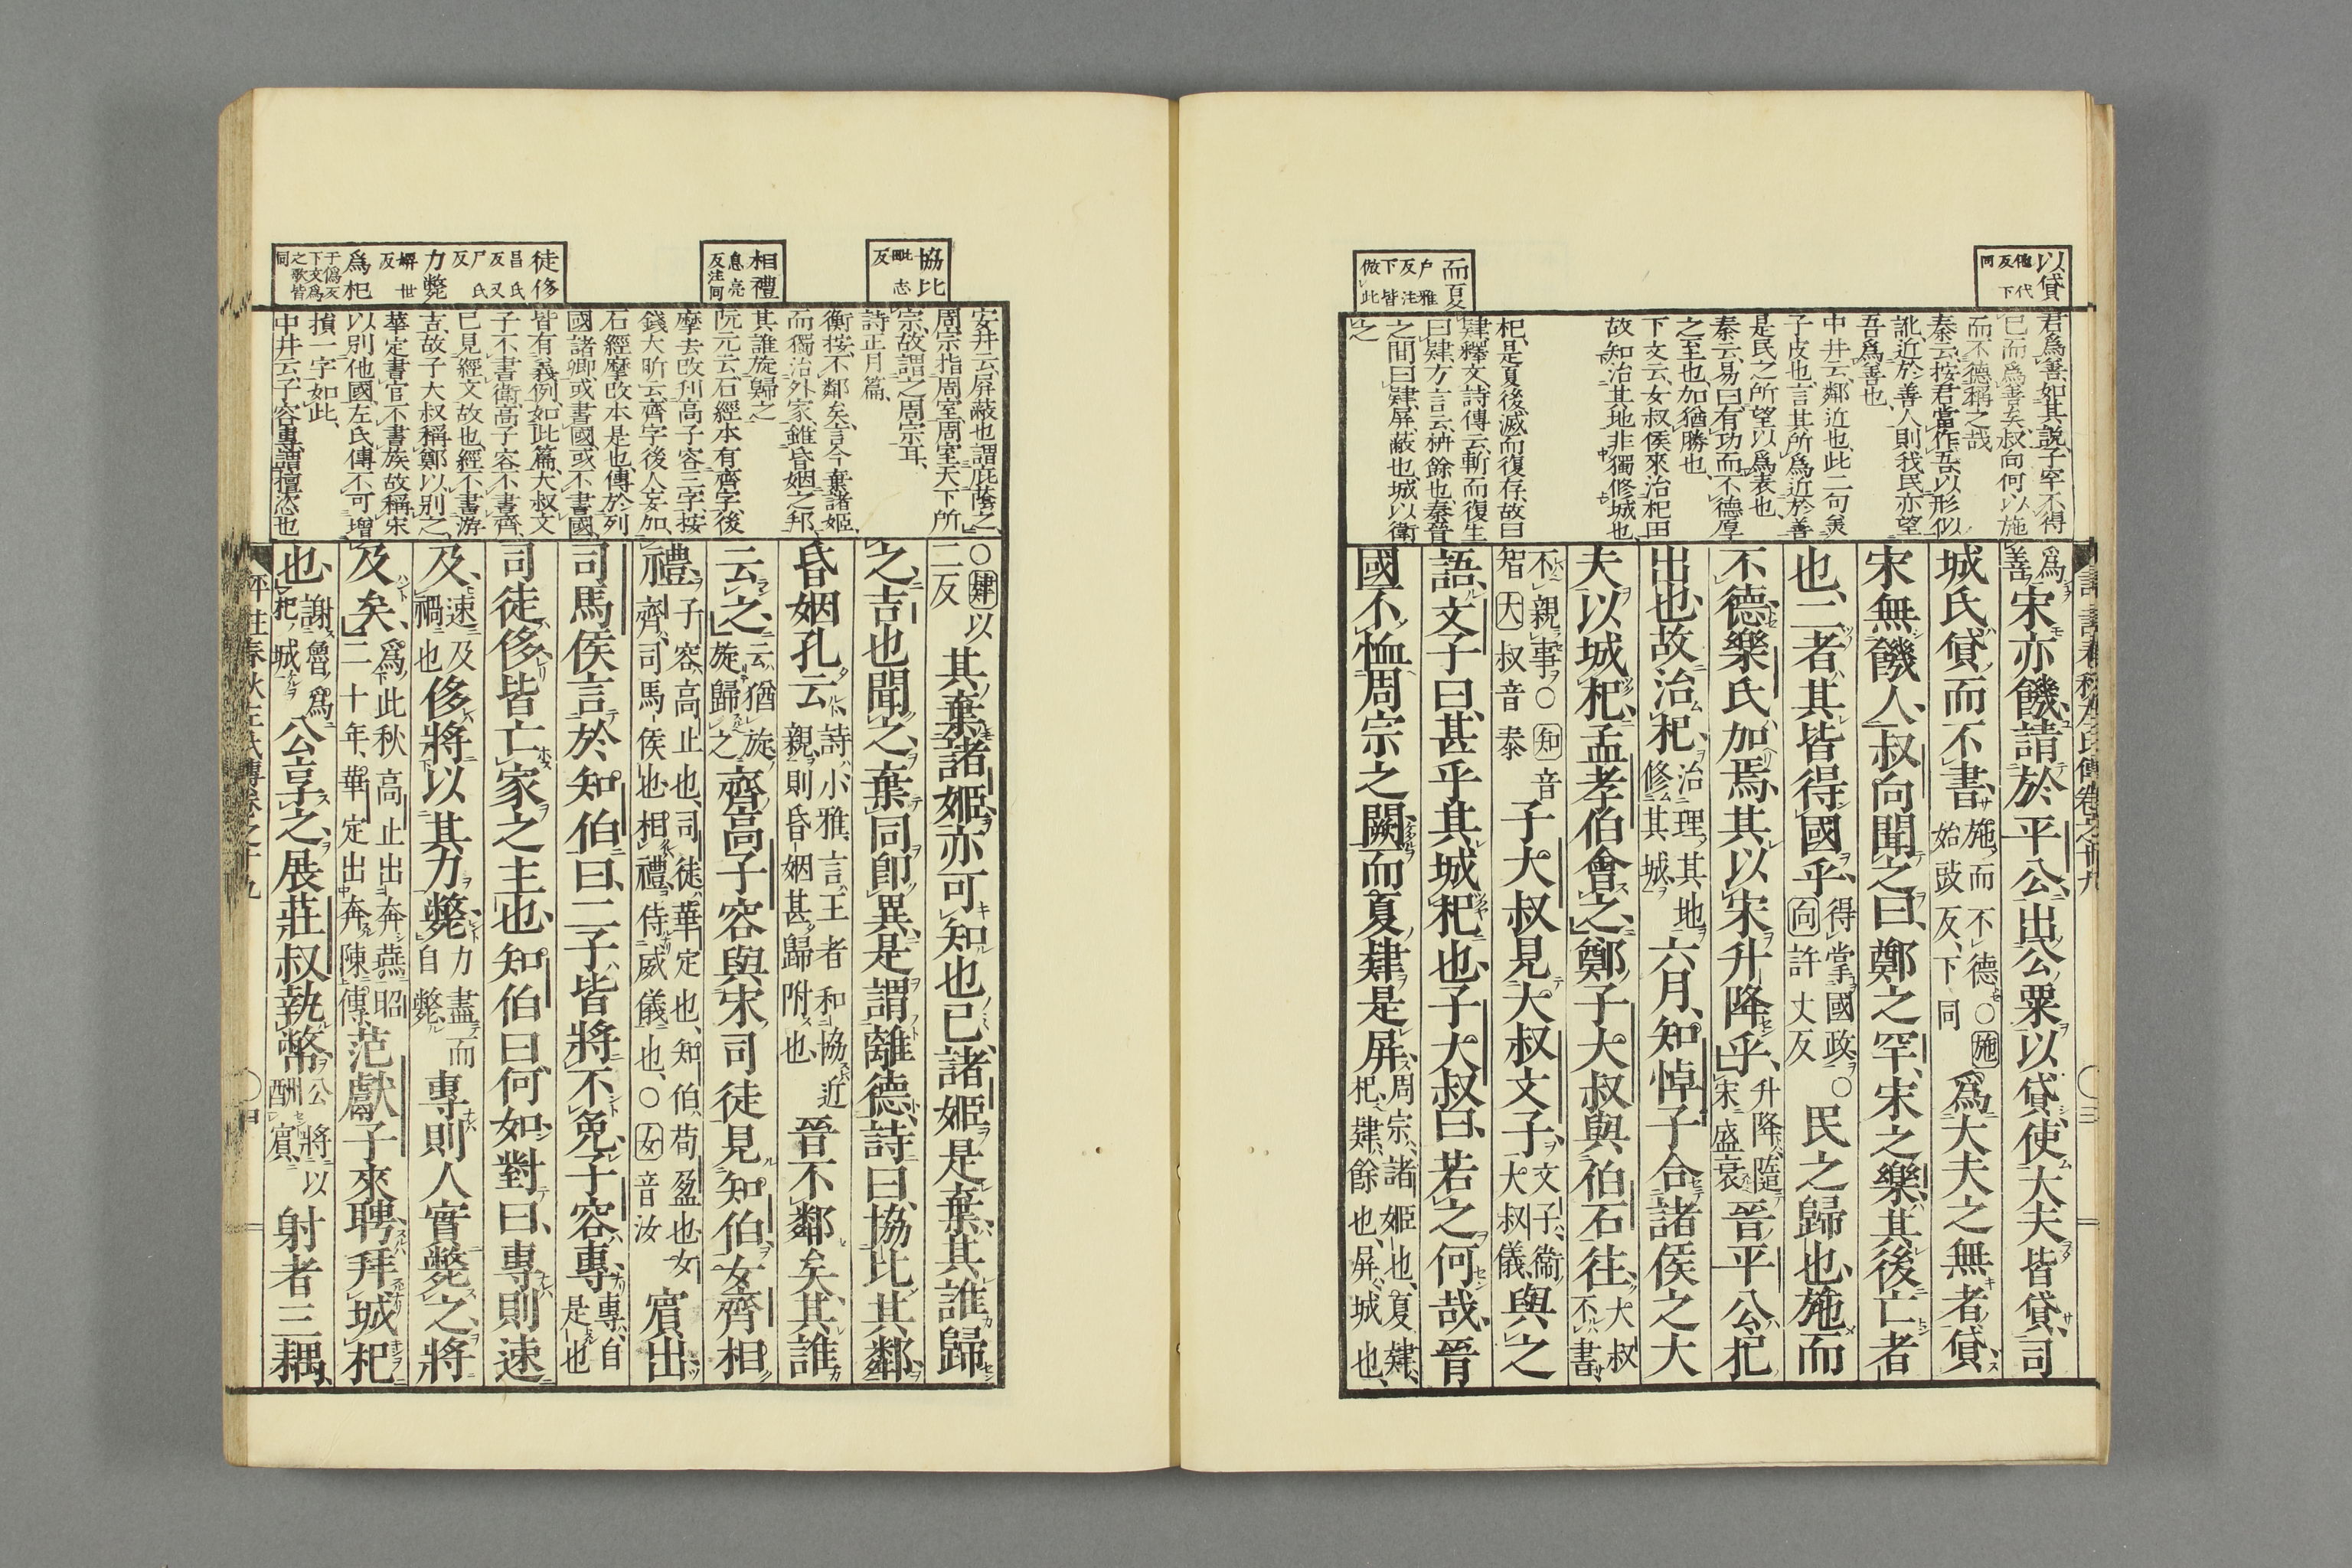 以貸
他代反下同
而夏
戸雅反注下皆倣此
君爲善如其説子罕不得
已而爲善矣叔向何以施
而不德稱之哉
秦云按君當作吾以形似
訛近於善人則我民亦望
吾爲善也
中井云鄰近也此二句美
子皮也言其所爲近於善
是民之所望以爲表也
秦云易曰有功而不德厚
之至也加猶勝也
下文云女叔侯來治杞田
故知治其地非獨修城也
杞是夏後滅而復存故曰
肄釋文詩傳云斬而復生
曰肄方言云枿餘也秦晉
之間曰肄屏蔽也城以衛
之
爲善宋亦饑請於平公出公粟以貸使大夫皆貸司
城氏貸而不書施而不德○施始豉反下同爲大夫之無者貸
宋無饑人叔向聞之曰鄭之罕宋之樂其後亡者
也二者其皆得國乎得掌國政○向許丈反民之歸也施而
不德樂氏加焉其以宋升降乎升降隨宋盛衰晉平公杞
出也故治杞治理其地修其城六月知悼子合諸侯之大
夫以城杞孟孝伯會之鄭子大叔與伯石往大叔不書
不親事○知音智大叔音泰子大叔見大叔文子文子衞大叔儀與之
語文子曰甚乎其城杞也子大叔曰若之何哉晉
國不恤周宗之闕而夏肄是屏周宗諸姬也夏肄杞肄餘也屏城也
協比
毗志反
相禮
息亮反注同
徒侈
昌氏反又尸氏反
力斃
婢世反
爲杞
于僞反下文爲之歌皆同
安井云屏蔽也謂庇蔭之
周宗指周室周室天下所
宗故謂之周宗耳
詩正月篇
衡按不鄰矣言今棄諸姬
而獨治外家雖昏姻之邦
其誰旋歸之
阮元云石經本有齊字後
摩去改刊高子容三字按
錢大昕云齊字後人妄加
石經摩改本是也傳於列
國諸卿或書國或不書國
皆有義例如此篇大叔文
子不書衞高子容不書齊
已見經文故也經不書游
吉故子大叔稱鄭以別之
華定書官不書族故稱宋
以別他國左氏傳不可增
損一字如此
中井云子容專謂擅恣也
○肄以二反其棄諸姬亦可知也已諸姬是棄其誰歸
之吉也聞之棄同即異是謂離德詩曰協比其鄰
昏姻孔云詩小雅言王者和協近親則昏姻甚歸附也晉不鄰矣其誰
云之云猶旋旋歸之齊高子容與宋司徒見知伯女齊相
禮子容高止也司徒華定也知伯荀盈也女齊司馬侯也相禮侍威儀也○女音汝賓出
司馬侯言於知伯曰二子皆將不免子容專專自是也
司徒侈皆亡家之主也知伯曰何如對曰專則速
及速及禍也侈將以其力斃力盡而自斃專則人實斃之將
及矣爲此秋高止出奔燕昭二十年華定出奔陳傳范獻子來聘拜城杞
也謝魯爲杞城公享之展莊叔執幣公將以酬賓射者三耦
評註春秋左氏傳卷之十九